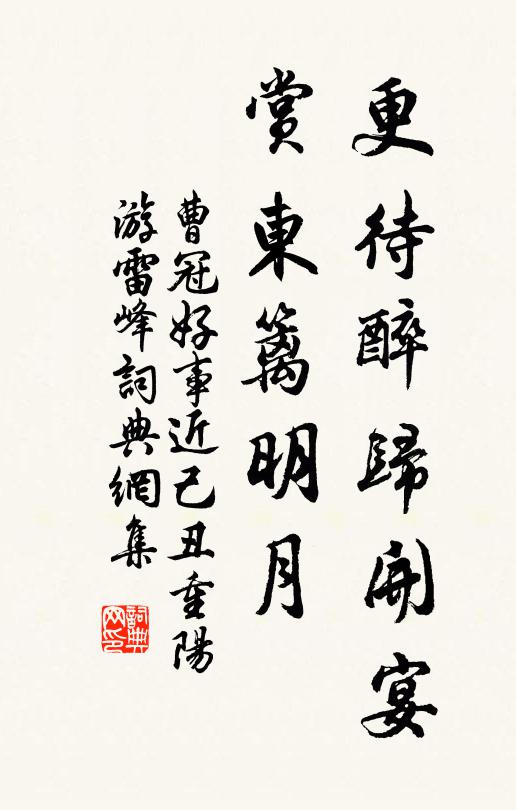 更待醉歸開宴
賞東籬明月
曹冠好事近己丑重陽
游雷峰詞典網集
詞典網印